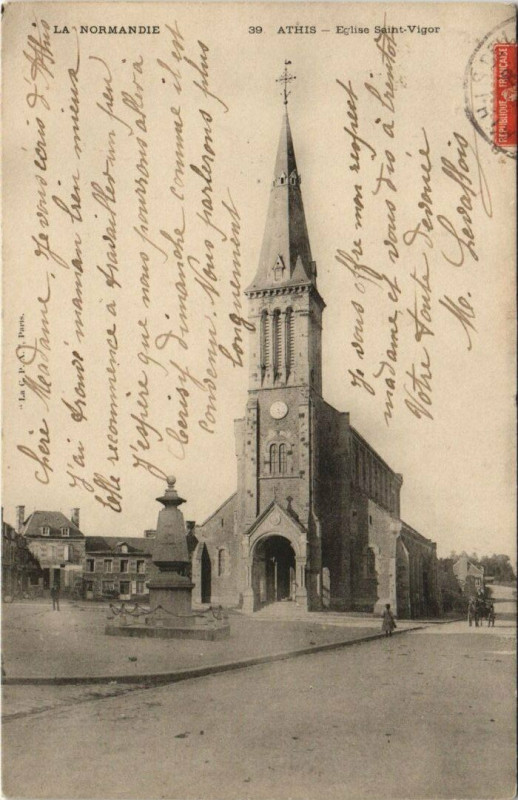 LA NORMANDIE
39 ATHIS — Eglise Saint-Vigor
REPUBLIQUE FRANÇAISE
"La C. P. A.", Paris.
Chère Madame, je vous écris d'Athis
J'ai trouvé maman bien mieux
Elle recommence à travailler un peu
J'espère que nous pourrons aller à
Cerisy dimanche comme il est
convenu. Nous parlerons plus
longuement
Je vous offre mon respect
madame et vous dis à bientôt
Votre toute dévouée
M. Levallois